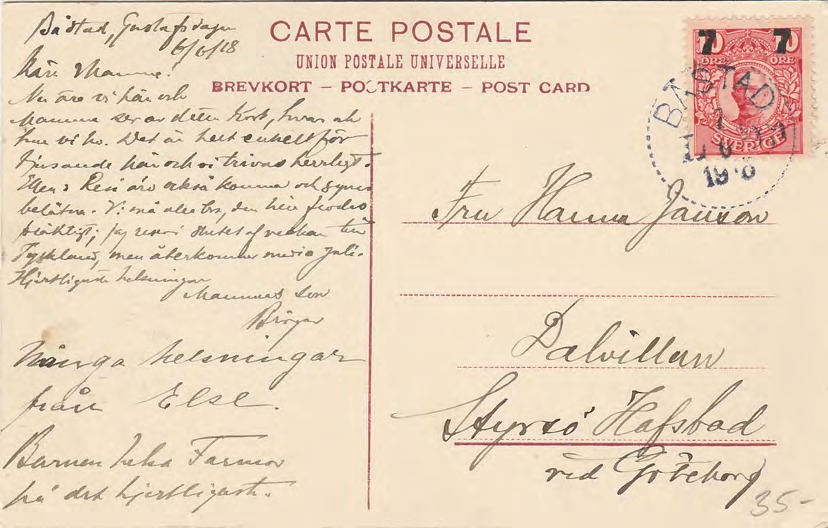 Båstad, Gustafsdagen
6/6/18
Kära Mamma!
Nu äro vi här och
Mamma ser av detta Kort, hvar och
hur vi bo. Det är helt enkelt för
tjusande här och vi trivas herrligt.
Ellen o René äro också komna och synes
belåtna. Vi må alla bra, den här
präktigt; jag reser i slutet af veckan till
Tyskland, men återkommer medio Juli.
Hjertligaste helsningar
Mammas son
Birger
Många helsningar
från Else.
Barnen helsa Farmor
på det hjertligaste.
CARTE POSTALE
UNION POSTALE UNIVERSELLE
BREVKORT – POSTKARTE – POST CARD
7 7
ÖRE ÖRE
SVERIGE
BÅSTAD
Fru Hanna Janson
Dalvillan
Styrsö Hafsbad
vid Göteborg
35-